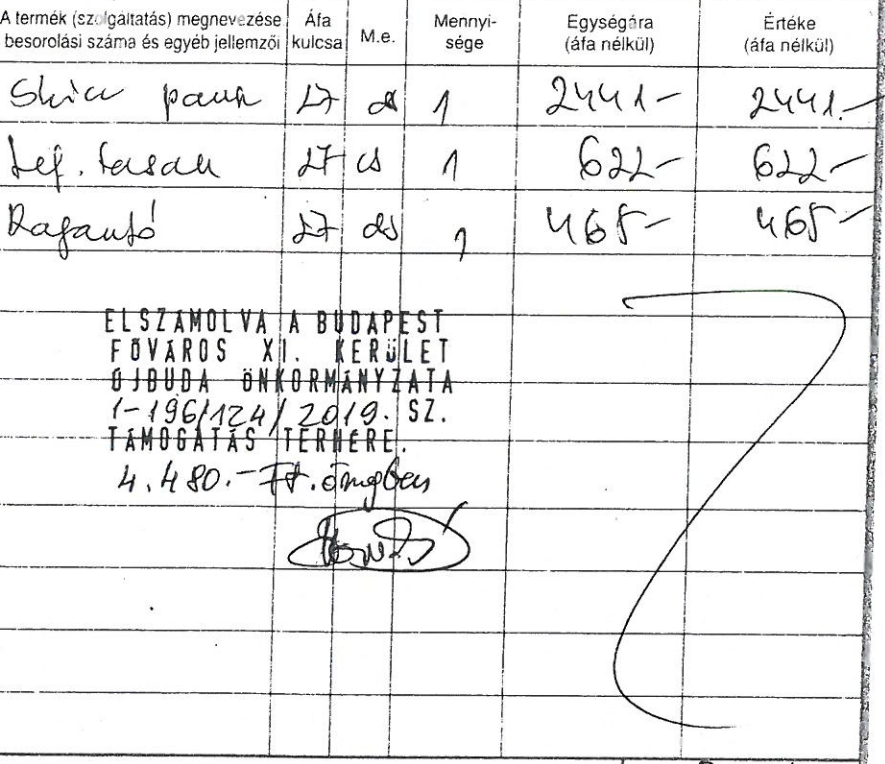 A termék (szolgáltatás) megnevezése besorolási száma és egyéb jellemzői Áfa kulcsa M.e. Mennyi-sége Egységára (áfa nélkül) Értéke (áfa nélkül)
27 1 2441- 2441.-
Lef. tasak 27 cs 1 622- 622-
Ragasztó 27 1 465- 465-
ELSZÁMOLVA A BUDAPEST
FŐVÁROS XI. KERÜLET
ÚJBUDA ÖNKORMÁNYZATA
1-196/124/2019. SZ.
TÁMOGATÁS TERHÉRE.
4.480.- Ft.